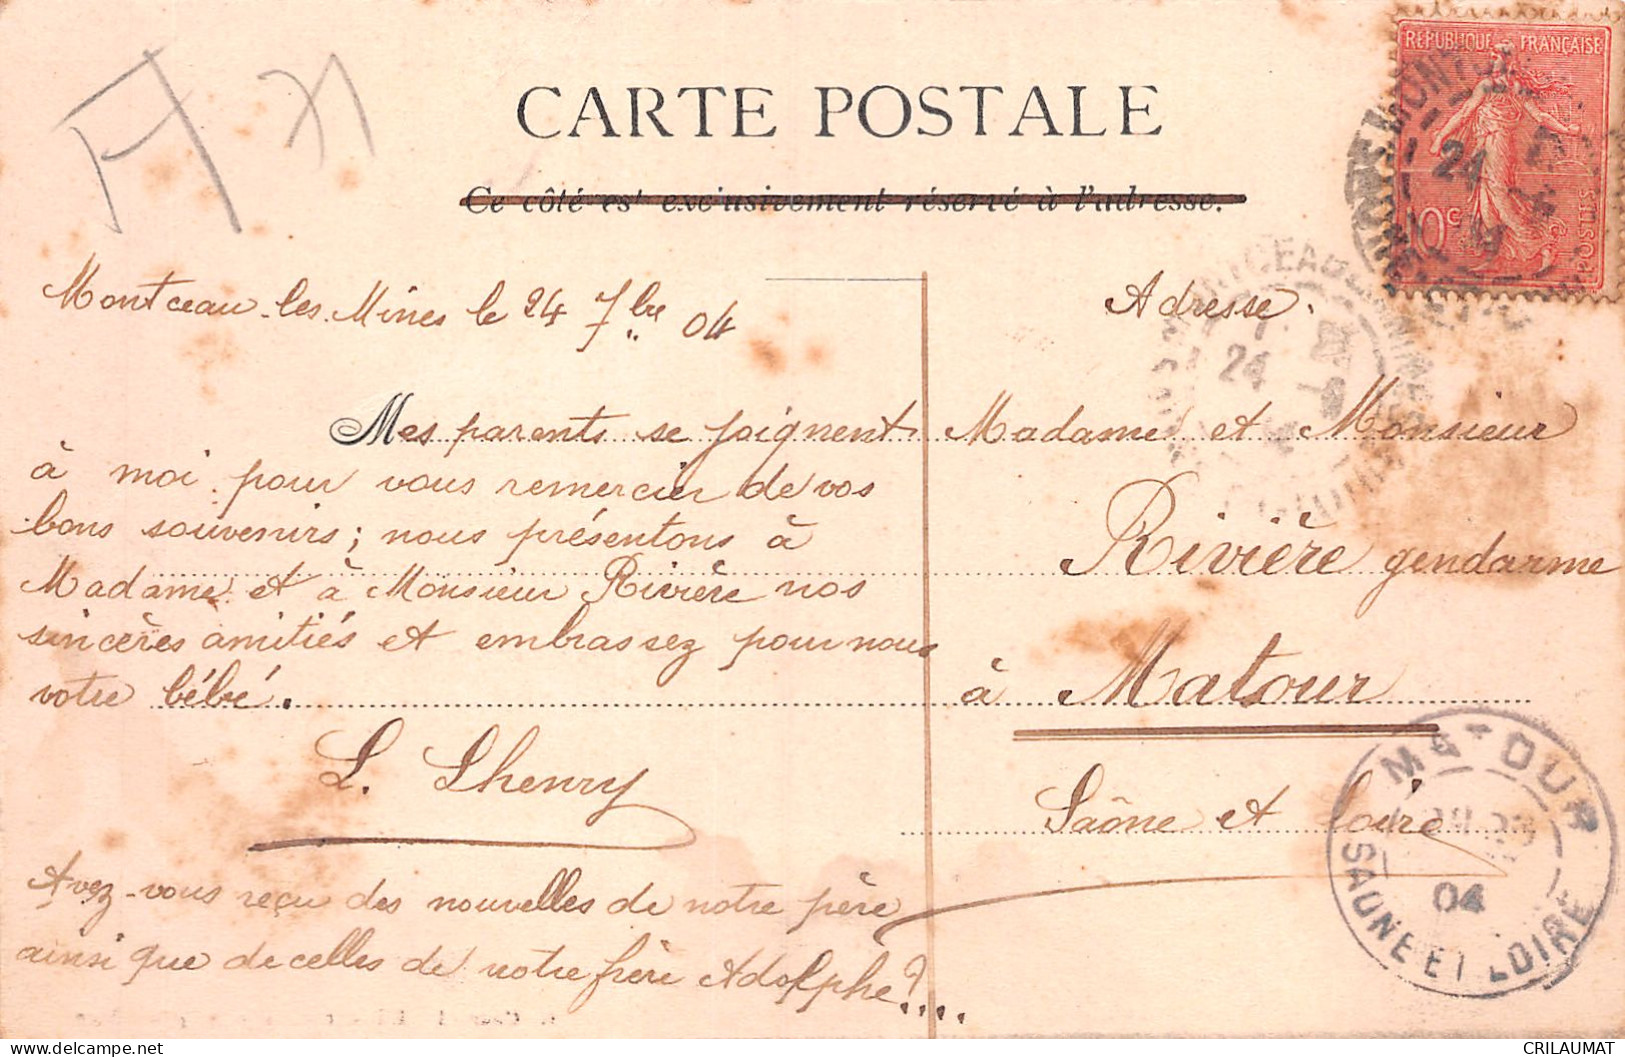 A 71
CARTE POSTALE
Ce côté est exclusivement réservé à l'adresse.
RÉPUBLIQUE FRANÇAISE
10c
POSTES
24
Montceau-les-Mines le 24 7bre 04
Mes parents se joignent
à moi pour vous remercier de vos
bons souvenirs; nous présentons à
Madame et à Monsieur Rivière nos
sincères amitiés et embrassez pour nous
votre bébé.
L. Lhenry
Avez-vous reçu des nouvelles de notre père
ainsi que de celles de notre frère Adolphe?....
Adresse.
MONTCEAU-LES-MINES
24
Madame et Monsieur
Rivière gendarme
à Matour
Saône et Loire
MATOUR
04
SAONE ET LOIRE
delcampe.net
CRILAUMAT